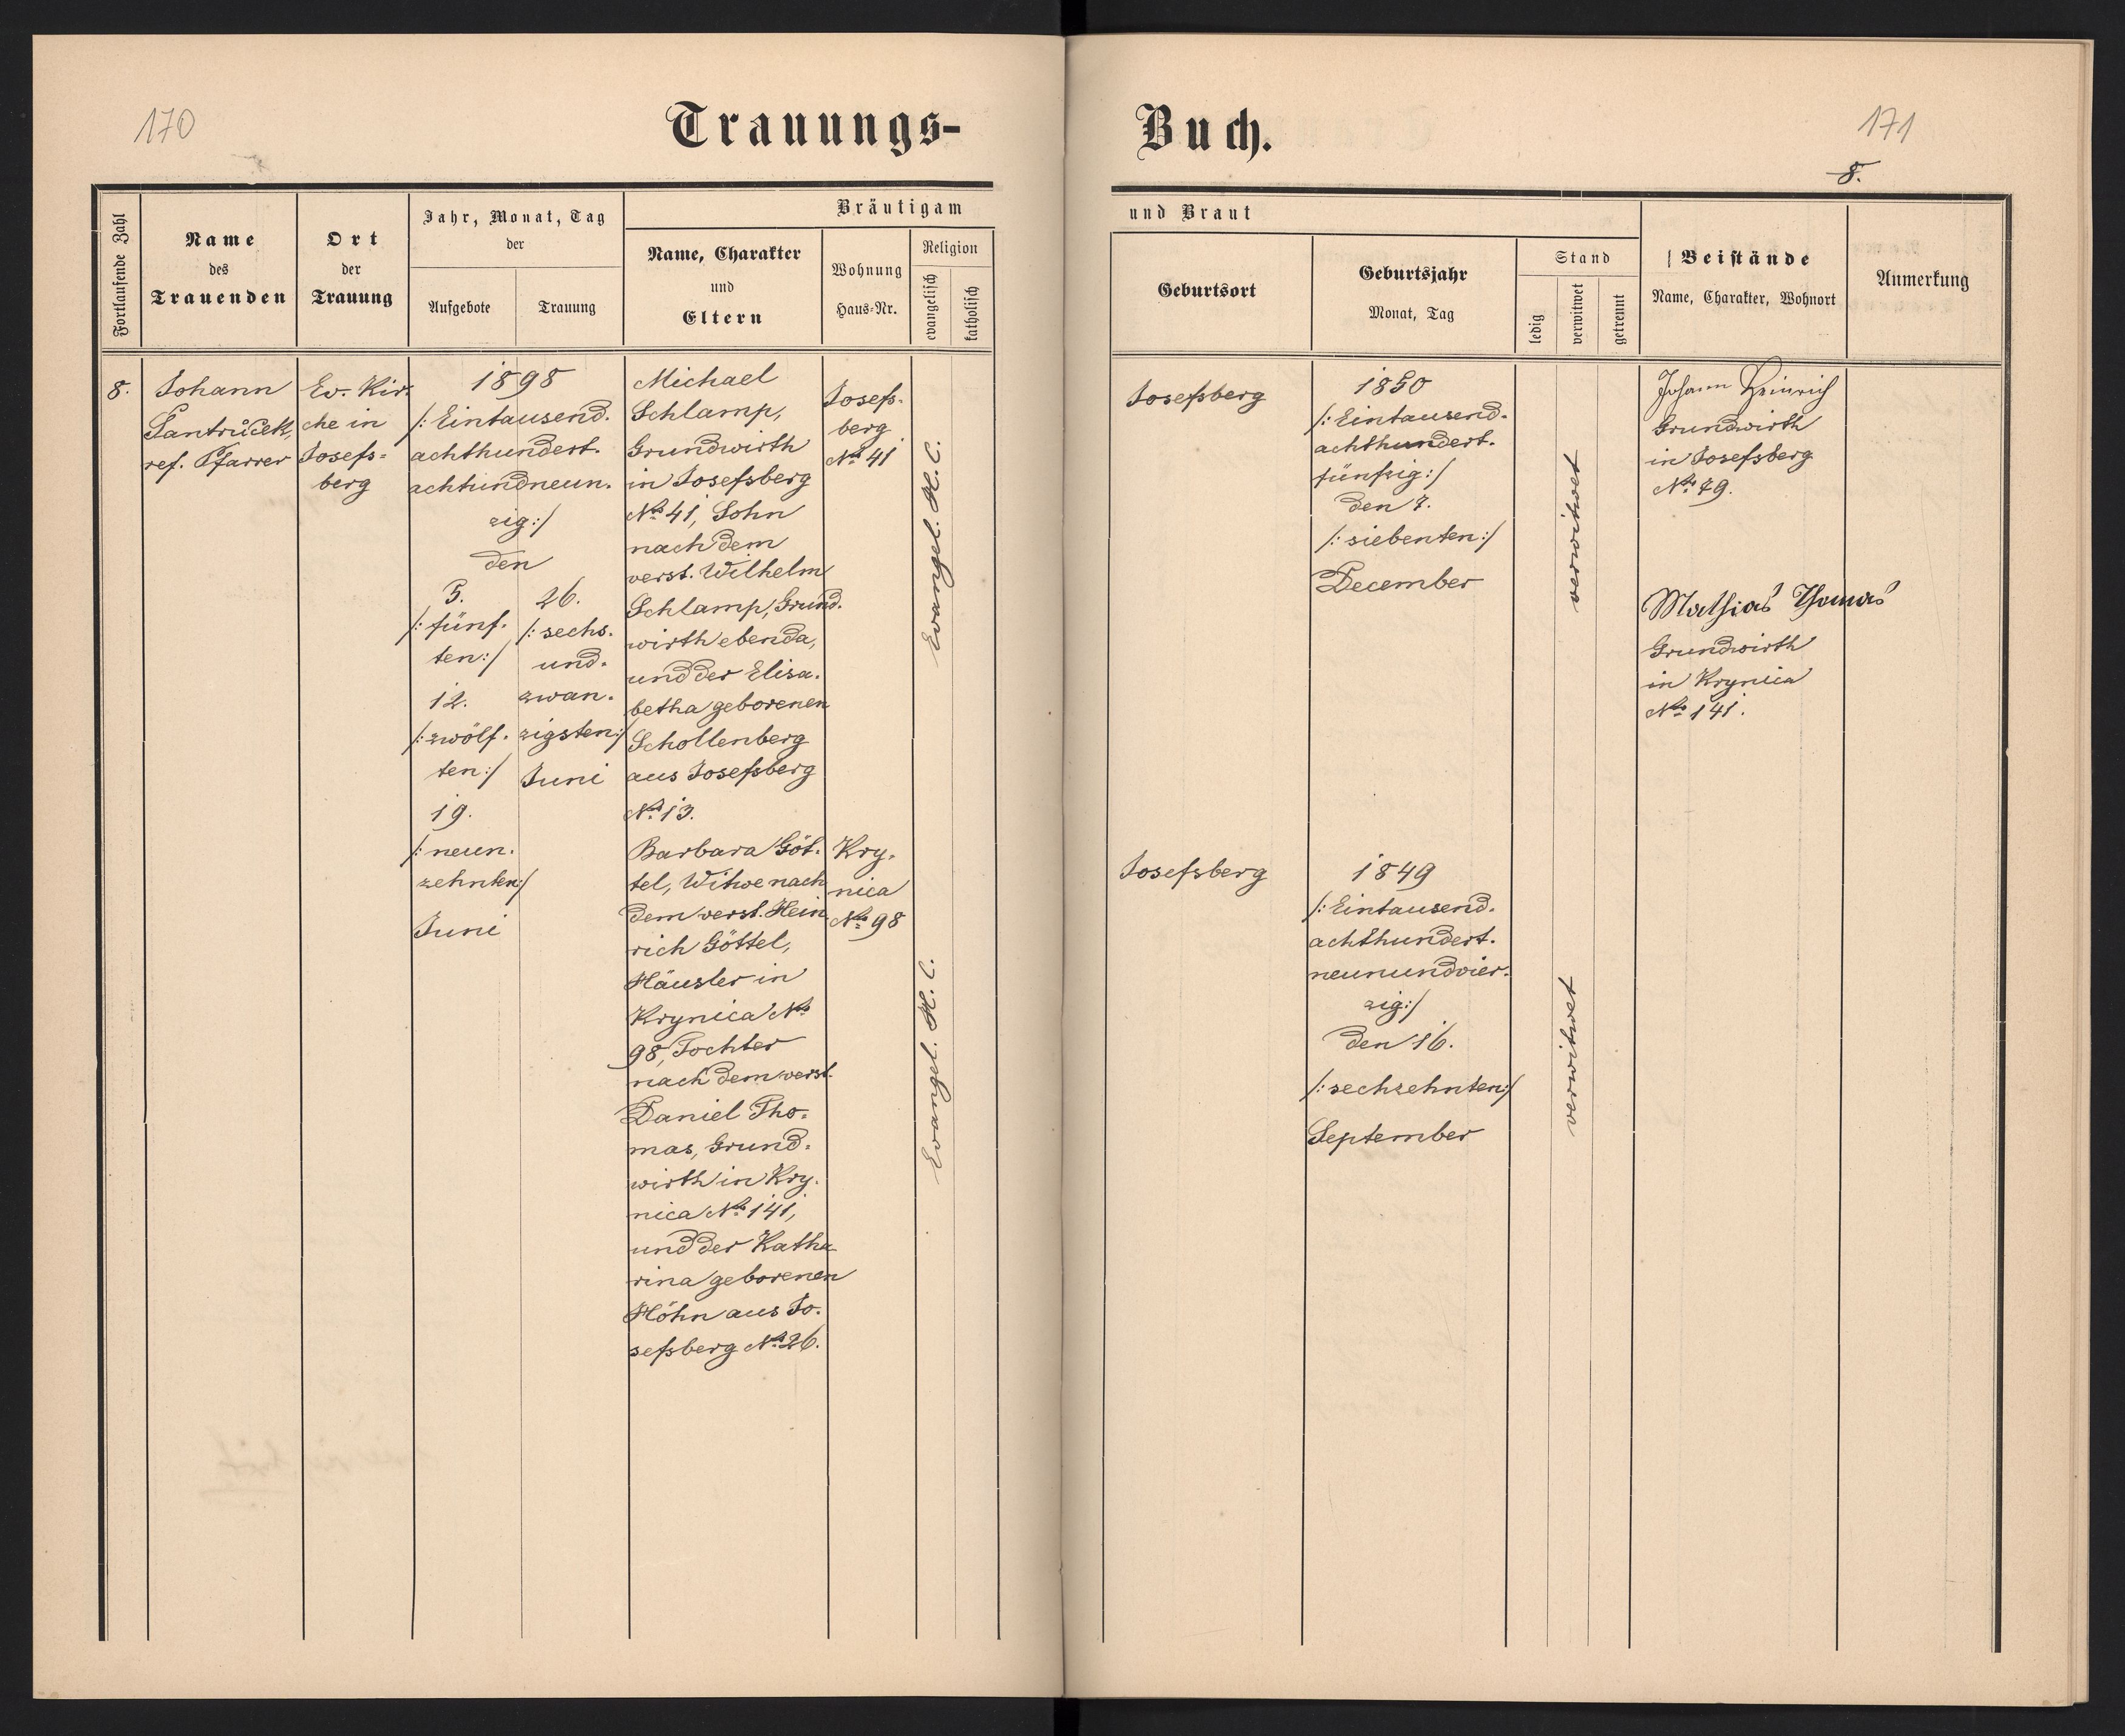 170
Trauungs-
Fortlaufende Zahl
Name
des
Trauenden
Ort
der
Trauung
Jahr, Monat, Tag
der
Aufgebote
Trauung
Bräutigam
Name, Charakter
und
Eltern
Wohnung
Haus-Nr.
Religion
evangelisch
katholisch
8.
Johann
Pantrůček,
ref. Pfarrer
Ev. Kir-
che in
Josefs-
berg
1898
/: Eintausend-
achthundert-
achtundneun-
zig :/
den
5.
/: fünf-
ten :/
12.
/: zwölf-
ten :/
19.
/: neun-
zehnten :/
Juni
26.
/: sechs-
und-
zwan-
zigsten :/
Juni
Michael
Schlamp,
Grundwirth
in Josefsberg
No 41, Sohn
nach dem
verst. Wilhelm
Schlamp, Grund-
wirth ebenda,
und der Elisa-
betha geborenen
Schollenberg
aus Josefsberg
No 13.
Josefs-
berg
No 41
Evangel. H. C.
Barbara Göt-
tel, Witwe nach
dem verst. Hein-
rich Göttel,
Häusler in
Krynica No
98, Tochter
nach dem verst.
Daniel Tho-
mas, Grund-
wirth in Kry-
nica No 141,
und der Katha-
rina geborenen
Höhn aus Jo-
sefsberg No 26.
Kry-
nica
No 98
Evangel. H. C.
Buch.
171
8.
und Braut
Geburtsort
Geburtsjahr
Monat, Tag
Stand
ledig
verwitwet
getrennt
Beistände
Name, Charakter, Wohnort
Anmerkung
Josefsberg
1850
/: Eintausend-
achthundert-
fünfzig :/
den 7.
/: siebenten :/
December
verwitwet
Johann Heinrich
Grundwirth
in Josefsberg
No 79.
Mathias Thomas
Grundwirth
in Krynica
No 141.
Josefsberg
1849
/: Eintausend-
achthundert-
neunundvier-
zig :/
den 16.
/: sechzehnten :/
September
verwitwet